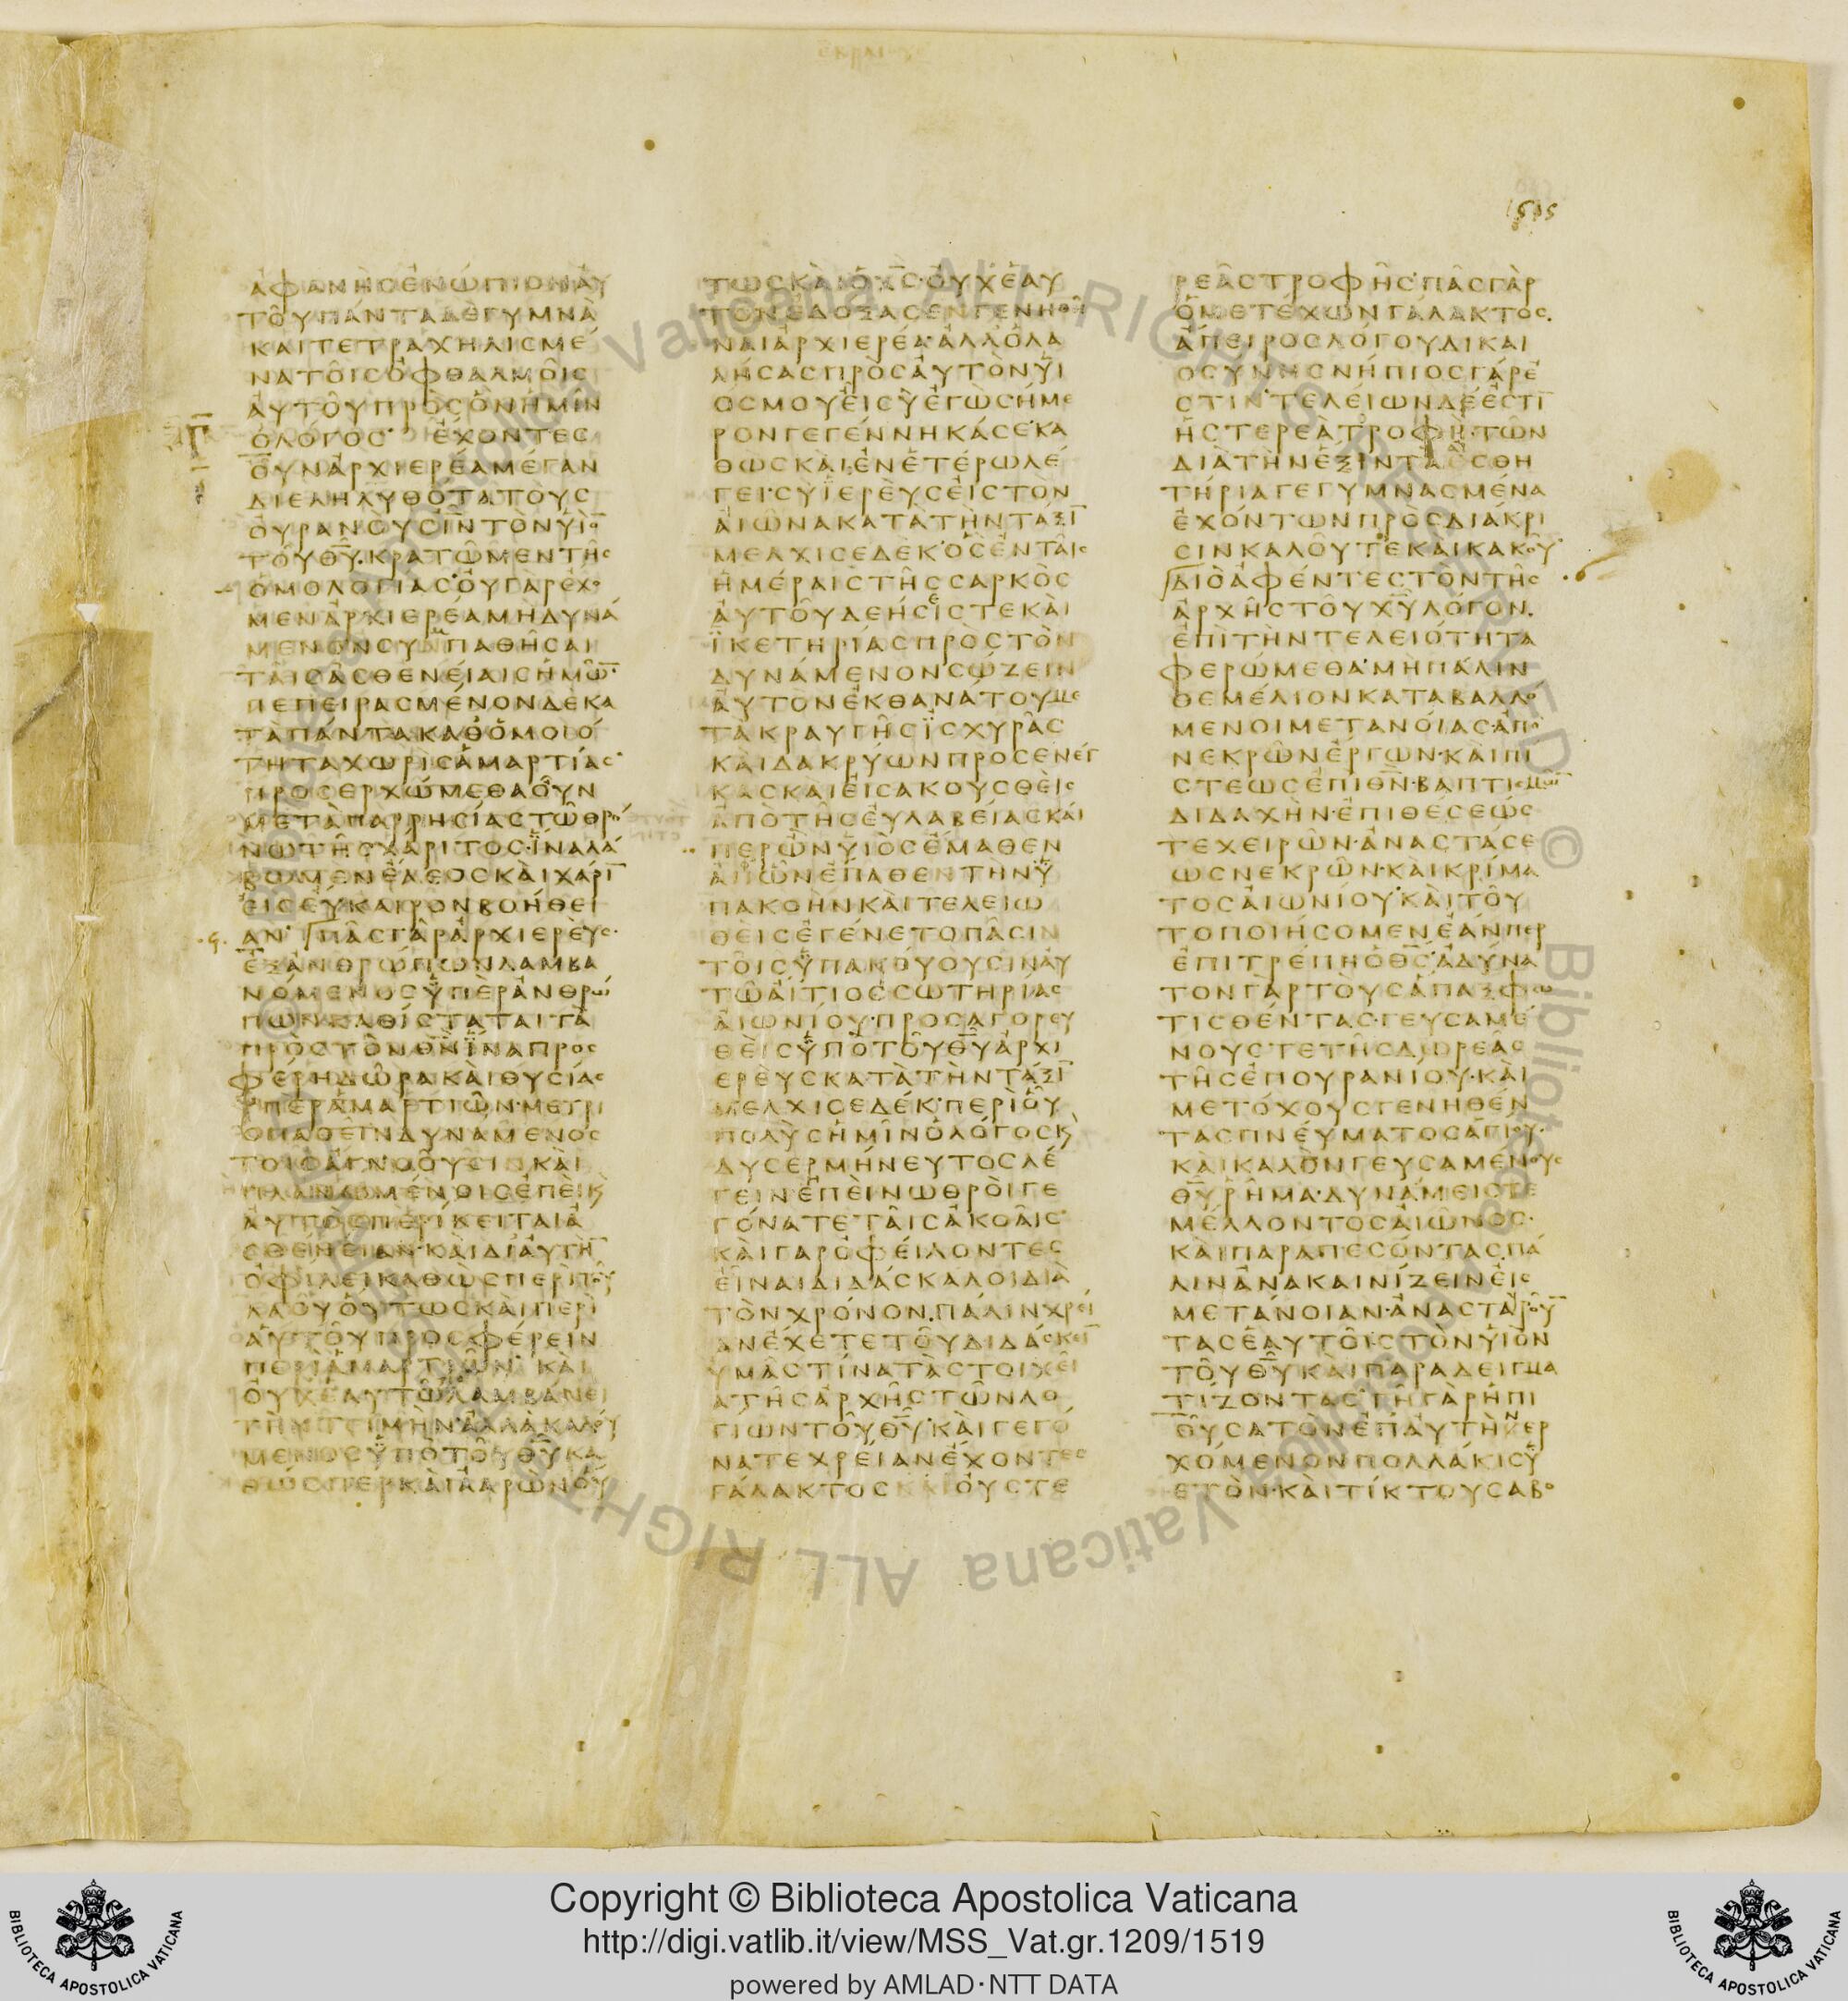 1515
ἀφανὴς ἐνώπιον αὐ
τοῦ πάντα δὲ γυμνὰ
καὶ τετραχηλισμέ
να τοῖς ὀφθαλμοῖς
αὐτοῦ πρὸς ὃν ἡμῖν
ὁ λόγος· ἔχοντες
οὖν ἀρχιερέα μέγαν
διεληλυθότα τοὺς
οὐρανοὺς ι̅ν̅ τὸν υἱὸ̅
τοῦ θ̅υ̅. κρατῶμεν τῆς
ὁμολογίας· οὐ γὰρ ἔχο
μεν ἀρχιερέα μὴ δυνά
μενον συμπαθῆσαι
ταῖς ἀσθενείαις ἡμῶ̅·
πεπειρασμένον δὲ κα
τὰ πάντα καθ ὁμοιό
τητα χωρὶς ἁμαρτίας·
προσερχώμεθα οὖν
μετὰ παρρησίας τῶ θρό
νω τῆς χάριτος· ἵνα λά
βωμεν ἔλεος καὶ χάρι̅
εἰς εὔκαιρον βοήθει
αν· πᾶς γὰρ ἀρχιερεὺς·
ἐξ ἀνθρώπων λαμβα
νόμενος ὑπὲρ ἀνθρώ
πων καθίσταται τὰ
πρὸς τὸν θ̅ν̅ ἵνα προς
φέρη δῶρα καὶ θυσίας
ὑπὲρ ἁμαρτιῶν· μετρι
οπαθεῖν δυνάμενος
τοῖς ἀγνοοῦσι καὶ
πλανωμένοις ἐπεὶ κ̀
αὐτὸς περίκειται ἀ
σθένειαν· καὶ δι αὐτὴ̅
ὀφείλει καθὼς περὶ τοῦ
λαοῦ οὕτως καὶ περὶ
αὑτοῦ προσφέρειν
περὶ ἁμαρτιῶν· καὶ
οὐχ ἑαυτῶ λαμβάνει
τὴν τιμὴν· ἀλλὰ καλού
μενος ὑπὸ τοῦ θ̅υ̅ κα
θώσπερ καὶ ἀαρών οὕ
τως καὶ ὁ χ̅ς̅· οὐχ ἑαυ
τὸν ἐδόξασεν γενηθῆ
ναι ἀρχιερέα· ἀλλ ὁ λα
λήσας πρὸς αὐτὸν υἱ
ός μου εἶ σὺ ἐγὼ σήμε
ρον γεγέννηκά σε· κα
θὼς καὶ ἐν ἑτέρω λέ
γει· σὺ ἱερεὺς εἰς τὸν
αἰῶνα κατὰ τὴν τάξι̅
μελχισεδέκ· ὃς ἐν ταῖς
ἡμέραις τῆς σαρκὸς
αὐτοῦ δεήσεις τε καὶ
ἱκετηρίας πρὸς τὸν
δυνάμενον σώζειν
αὐτὸν ἐκ θανάτου με
τὰ κραυγῆς ἰσχυρᾶς
καὶ δακρύων προσενέγ
κας καὶ εἰσακουσθεὶς
ἀπὸ τῆς εὐλαβείας καί
περ ὢν υἱὸς ἔμαθεν
ἀφ ὧν ἔπαθεν τὴν ὑ
πακοὴν καὶ τελειω
θεὶς ἐγένετο πᾶσιν
τοῖς ὑπακούουσιν αὐ
τῶ αἴτιος σωτηρίας
αἰωνίου· προσαγορευ
θεὶς ὑπὸ τοῦ θ̅υ̅ ἀρχι
ερεὺς κατὰ τὴν τάξι̅
μελχισεδέκ· περὶ οὗ
πολὺς ἡμῖν ὁ λόγος κ̀
δυσερμήνευτος λέ
γειν ἐπεὶ νωθροὶ γε
γόνατε ταῖς ἀκοαῖς·
καὶ γὰρ ὀφείλοντες
εἶναι διδάσκαλοι διὰ
τὸν χρόνον. πάλιν χρεί
αν ἔχετε τοῦ διδάσκει̅
ὑμᾶς τίνα τὰ στοιχεῖ
α τῆς ἀρχῆς τῶν λο
γίων τοῦ θ̅υ̅· καὶ γεγό
νατε χρείαν ἔχοντες
γάλακτος καὶ οὐ στε
ρεᾶς τροφῆς· πᾶς γὰρ
ὁ μετέχων γάλακτος.
ἄπειρος λόγου δικαι
οσύνης νήπιος γάρ ἐ
στιν· τελείων δέ ἐστι̅
ἡ στερεὰ τροφή· τῶν
διὰ τὴν ἕξιν τὰ αἰσθη
τήρια γεγυμνασμένα
ἐχόντων πρὸς διάκρι
σιν καλοῦ τε καὶ κακοῦ·
διὸ ἀφέντες τὸν τῆς
ἀρχῆς τοῦ χ̅υ̅ λόγον.
ἐπὶ τὴν τελειότητα
φερώμεθα· μὴ πάλιν
θεμέλιον καταβαλλό
μενοι μετανοίας ἀπὸ
νεκρῶν ἔργων· καὶ πί
στεως ἐπὶ θ̅ν̅· βαπτισμῶ̅
διδαχὴν· ἐπιθέσεώς
τε χειρῶν· ἀναστάσε
ως νεκρῶν· καὶ κρίμα
τος αἰωνίου· καὶ τοῦ
το ποιήσομεν ἐάνπερ
ἐπιτρέπη ὁ θ̅ς̅· ἀδύνα
τον γὰρ τοὺς ἅπαξ φω
τισθέντας· γευσαμέ
νους τε τῆς δωρεᾶς
τῆς ἐπουρανίου· καὶ
μετόχους γενηθέν
τας πνεύματος ἁγίου·
καὶ καλὸν γευσαμένους
θ̅υ̅ ῥῆμα· δυνάμεις τε
μέλλοντος αἰῶνος·
καὶ παραπεσόντας πά
λιν ἀνακαινίζειν εἰς
μετάνοιαν· ἀνασταυροῦ̅
τας ἑαυτοῖς τὸν υἱὸν
τοῦ θ̅υ̅ καὶ παραδειγμα
τίζοντας· γῆ γὰρ ἡ πι
οῦσα τὸν ἐπ αὐτὴν ἐρ
χόμενον πολλάκις ὑ
ετὸν· καὶ τίκτουσα βο
Copyright © Biblioteca Apostolica Vaticana
http://digi.vatlib.it/view/MSS_Vat.gr.1209/1519
powered by AMLAD·NTT DATA
BIBLIOTECA APOSTOLICA VATICANA
BIBLIOTECA APOSTOLICA VATICANA